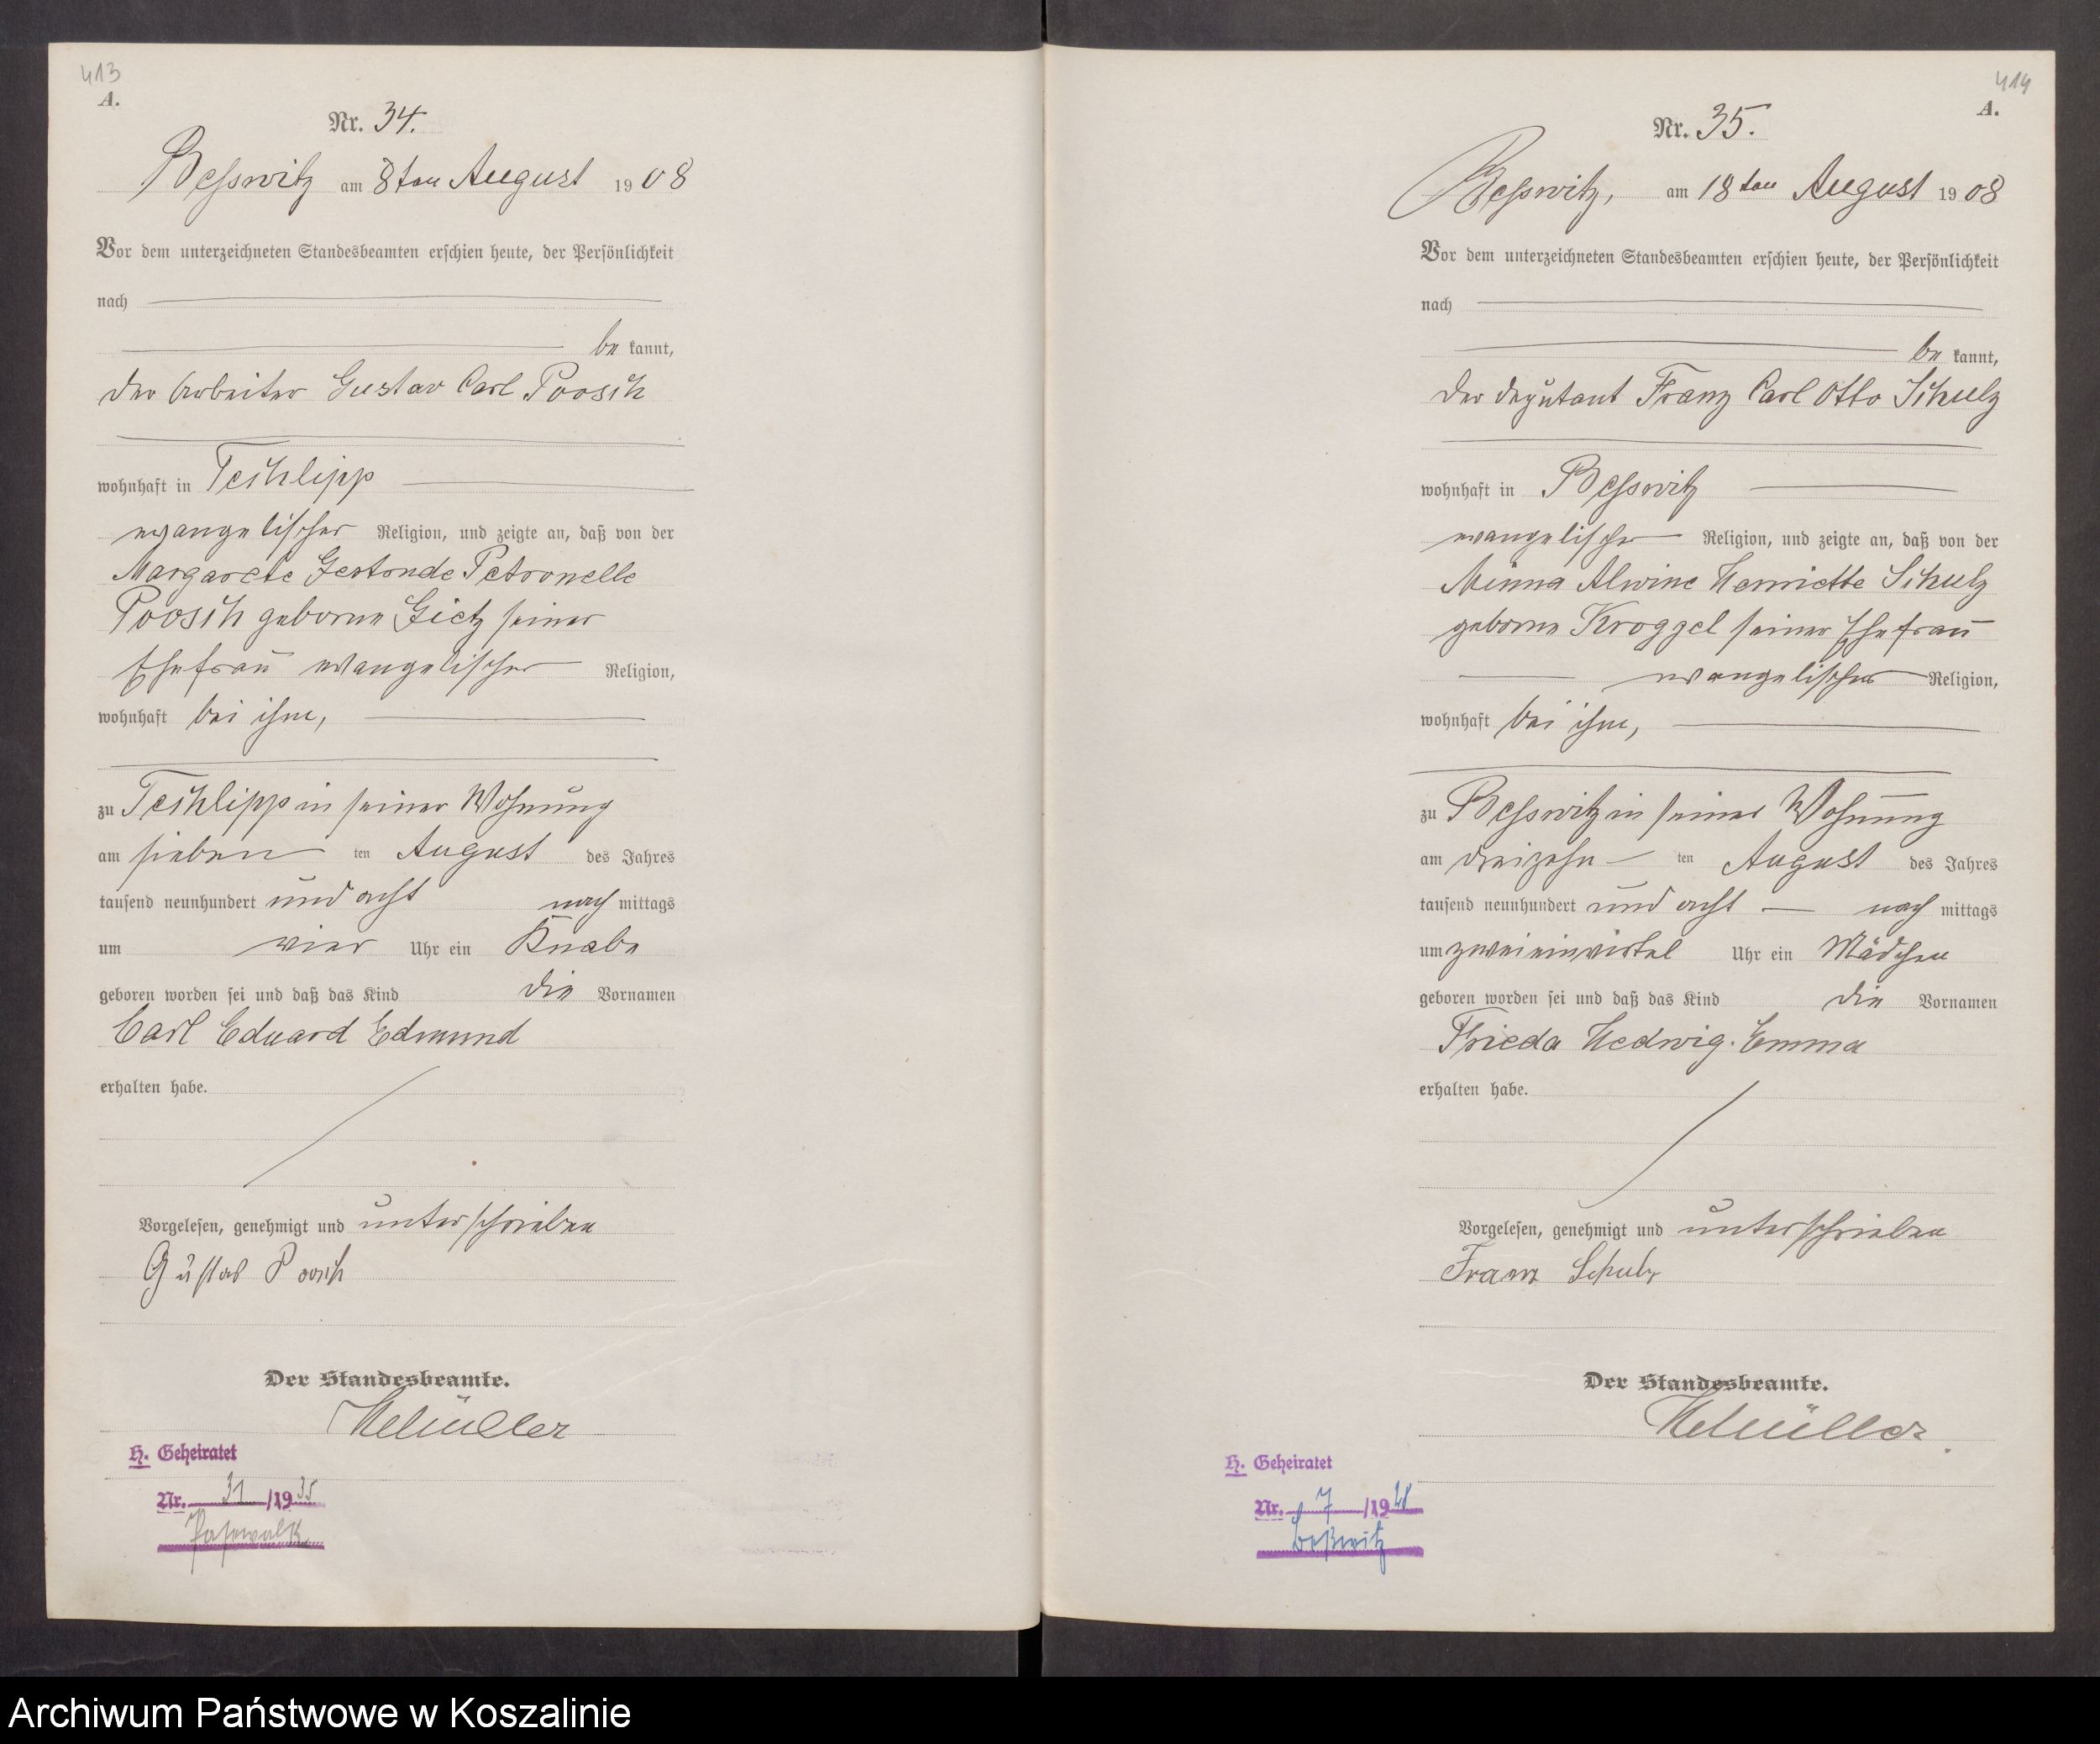 413
A.
Nr. 34.
Besswitz am 8ten August 1908
Vor dem unterzeichneten Standesbeamten erschien heute, der Persönlichkeit
nach
be kannt,
der Arbeiter Gustav Carl Poosch
wohnhaft in Techlipp
evangelischer Religion, und zeigte an, daß von der
Margarete Gertrude Petronelle
Poosch geborne Gietz seiner
Ehefrau evangelischer Religion,
wohnhaft bei ihm,
zu Techlipp in seiner Wohnung
am sieben ten August des Jahres
tausend neunhundert und acht nach mittags
um vier Uhr ein Knabe
geboren worden sei und daß das Kind die Vornamen
Carl Eduard Edmund
erhalten habe.
Vorgelesen, genehmigt und unterschrieben
Gustav Poosch
Der Standesbeamte.
H. Geheiratet
Nr. 31 /1935
Pasewalk
414
A.
Nr. 35.
Besswitz, am 18ten August 1908
Vor dem unterzeichneten Standesbeamten erschien heute, der Persönlichkeit
nach
be kannt,
der Deputant Franz Carl Otto Schulz
wohnhaft in Besswitz
evangelischer Religion, und zeigte an, daß von der
Minna Alwine Henriette Schulz
geborne Kroggel seiner Ehefrau
evangelischer Religion,
wohnhaft bei ihm,
zu Besswitz in seiner Wohnung
am dreizehn ten August des Jahres
tausend neunhundert und acht nach mittags
um zweieinviertel Uhr ein Mädchen
geboren worden sei und daß das Kind die Vornamen
Frieda Hedwig Emma
erhalten habe.
Vorgelesen, genehmigt und unterschrieben
Franz Schulz
Der Standesbeamte.
H. Geheiratet
Nr. 7 /19
Beßwitz
Archiwum Państwowe w Koszalinie